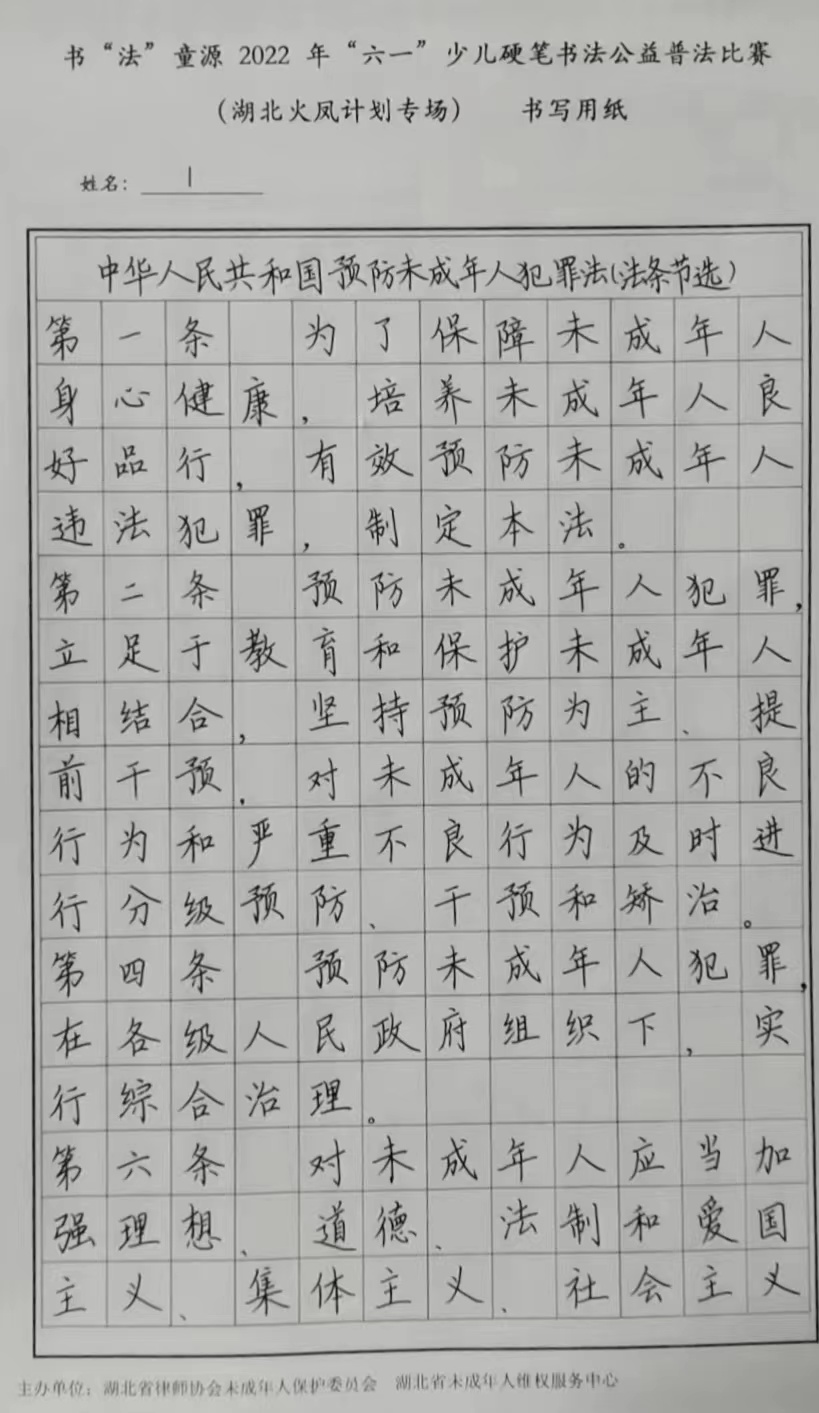 书“法”童源 2022 年“六一”少儿硬笔书法公益普法比赛
（湖北火凤计划专场） 书写用纸
姓名：
中华人民共和国预防未成年人犯罪法（法条节选）
第一条 为了保障未成年人
身心健康，培养未成年人良
好品行，有效预防未成年人
违法犯罪，制定本法。
第二条 预防未成年人犯罪，
立足于教育和保护未成年人
相结合，坚持预防为主、提
前干预，对未成年人的不良
行为和严重不良行为及时进
行分级预防、干预和矫治。
第四条 预防未成年人犯罪，
在各级人民政府组织下，实
行综合治理。
第六条 对未成年人应当加
强理想、道德、法制和爱国
主义、集体主义、社会主义
主办单位：湖北省律师协会未成年人保护委员会 湖北省未成年人维权服务中心